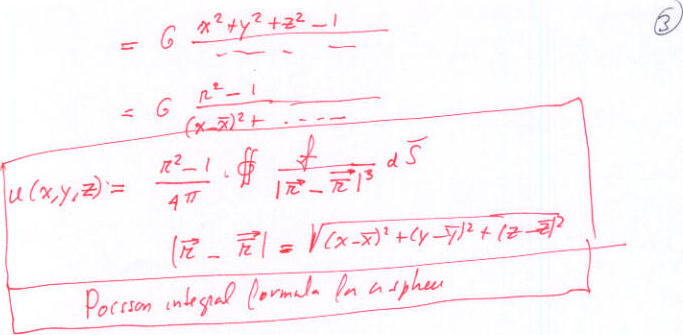 ③
= G x²+y²+z²-1 / -- -- . --
= G r²-1 / (x-x̄)²+ ....
u(x,y,z) = r²-1 / 4π · ∯ f / |r⃗ - r̄⃗|³ d S̄
|r⃗ - r̄⃗| = √(x-x̄)²+(y-ȳ)²+(z-z̄)²
Poisson integral formula for a sphere